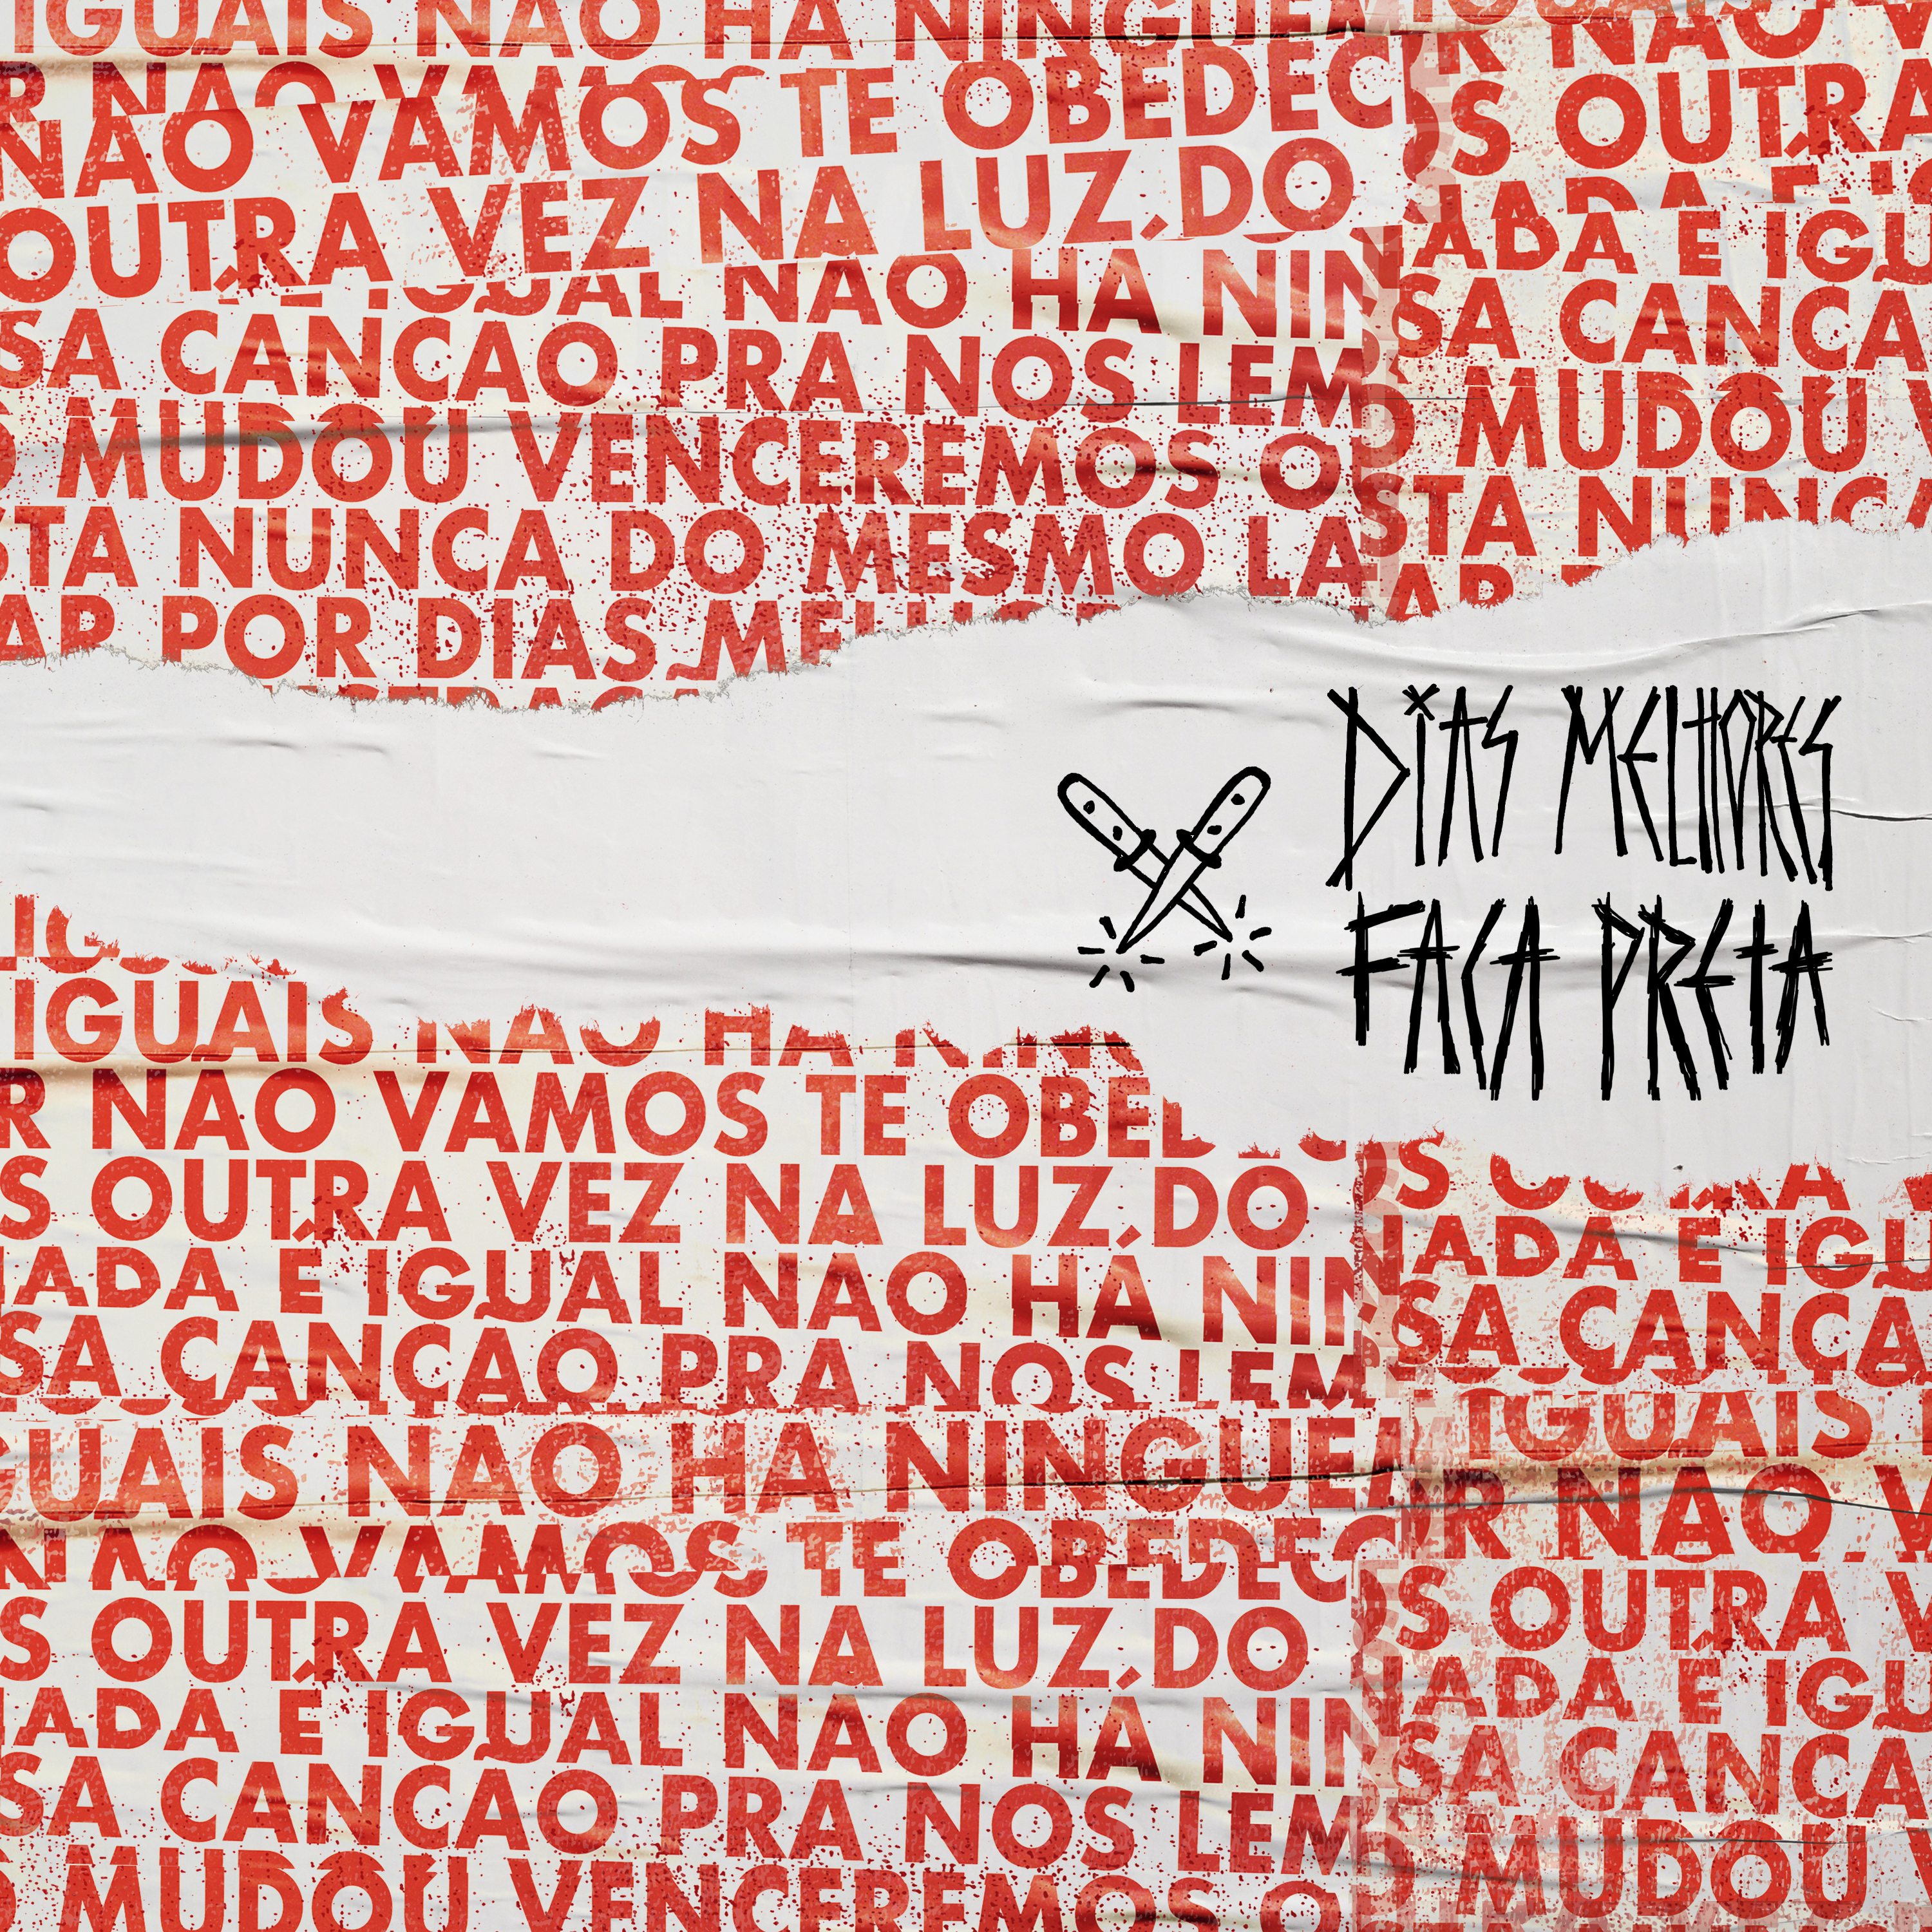 IGUAIS NÃO HÁ NINGUÉM
NAO VAMOS TE OBEDEC
OUTRA VEZ NA LUZ, DO
S OUTRA
IGUAL NAO HA NIN
ADA E IGU
SA CANCAO PRA NOS LEM
SA CANCA
MUDOU VENCEREMOS O
MUDOU V
STA NUNCA DO MESMO LA
STA NUNCA
AR POR DIAS MELHOR
DIAS MELHORES
FACA PRETA
IGUAIS NAO HA NING
R NAO VAMOS TE OBED
S OUTRA VEZ NA LUZ, DO
ADA É IGUAL NAO HÁ NIN
ADA E IGU
SA CANÇAO PRA NOS LEM
SA CANÇA
GUAIS NAO HA NINGUÉ
IGUAIS
NAO VAMOS TE OBEDEC
R NAO V
S OUTRA VEZ NA LUZ, DO
S OUTRA V
ADA É IGUAL NAO HÁ NIN
ADA E IGU
SA CANCAO PRA NOS LEM
SA CANCA
MUDOU VENCEREMOS O
MUDOU V